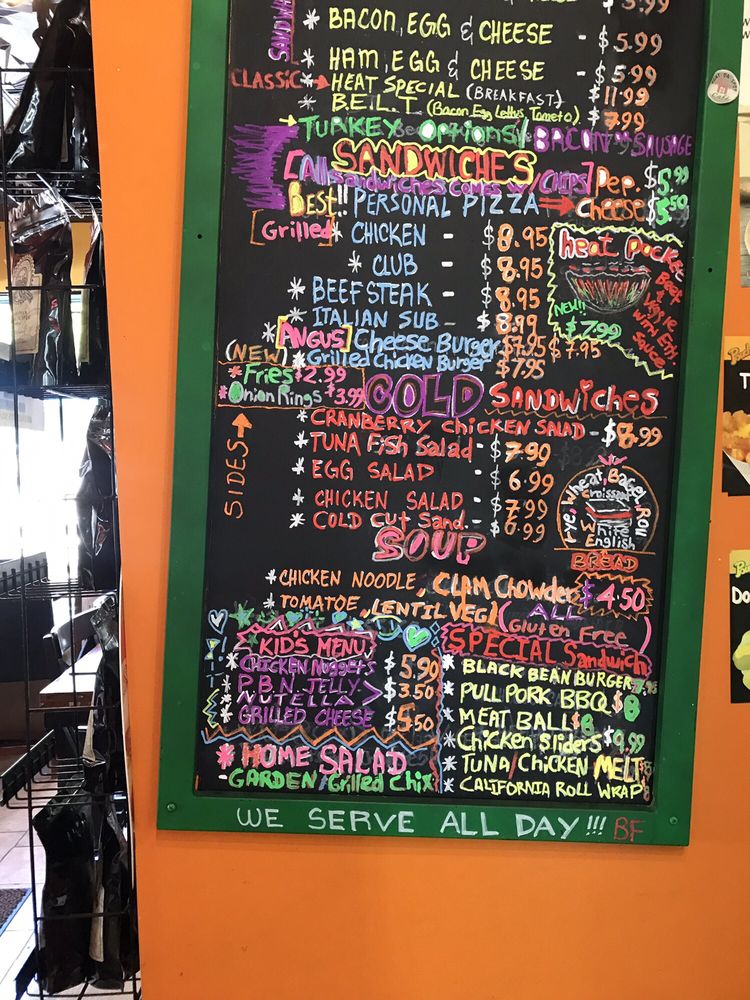 $3.99
SANDW
* BACON, EGG & CHEESE - $5.99
* HAM, EGG & CHEESE - $5.99
CLASSIC → HEAT SPECIAL (BREAKFAST) $11.99
* B.E.L.T. (Bacon Egg Lettus, Tometo) $7.99
→ TURKEY Options/ BACON - SAUSAGE
SANDWICHES
[All sandwiches comes w/ CHIPS] Pep. $5.99
Best!! PERSONAL PIZZA ⇒ Cheese $5.50
[Grilled * CHICKEN $8.95
* CLUB - $8.95
* BEEFSTEAK - $8.95
* ITALIAN SUB - $8.99
* [ANGUS] Cheese Burger $7.95 $7.95
(NEW) * Grilled Chicken Burger $7.95
heat pocket
Beef & Veggie with Eth Sauce
NEW!! $7.99
* Fries $2.99
* Onion Rings $3.99
SIDES →
COLD SANDWiCHES
* CRANBERRY chicken SALAD - $8.99
* TUNA Fish Salad - 7.99
* EGG SALAD - 6.99
* CHICKEN SALAD - 7.99
* COLD cut Sand. - 6.99
Rye, Wheat, Bagel, Roll
Croissant
White
English
BREAD
SOUP
* CHICKEN NOODLE, CLAM Chowder $4.50
* TOMATOE, LENTIL VEG. (ALL Gluten Free)
KID'S MENU
* CHICKEN NuggetS $5.99
* P.B.N. JELLY $3.50
* NUTELLA
* GRILLED CHEESE $5.50
* HOME SALAD
- GARDEN/Grilled Chix
SPECIAL Sandwich
* BLACK BEAN BURGER 7.95
* PULL PORK BBQ $8
* MEAT BALL $8
* Chicken Sliders $9.99
* TUNA/CHICKEN MELT
* CALIFORNIA ROLL WRAP
WE SERVE ALL DAY!!! BF